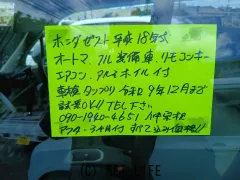 ホンダゼスト平成18年式
オートマ、フル装備車、リモコンキー
エアコン、アルミホイル付
車検タップリ 令和9年12月まで
試乗OK!! TEL下さい
090-1940-4651
アフター3ヶ月付 すべて込み価格!!